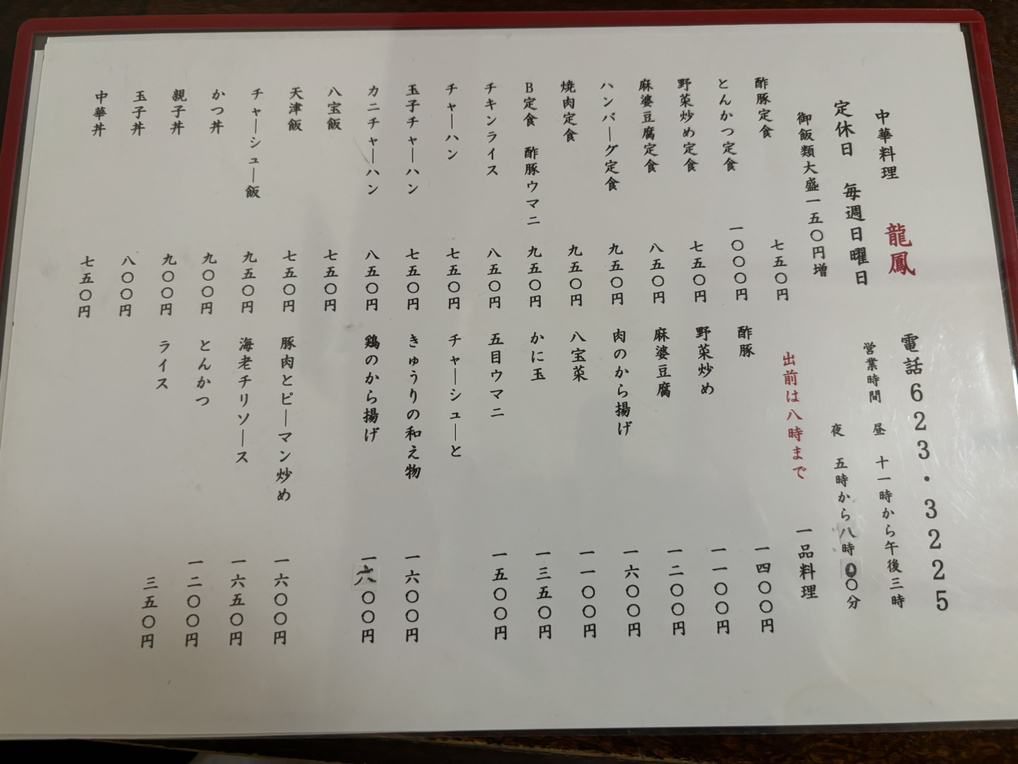 中華料理 龍鳳
定休日 毎週日曜日
御飯類大盛一五〇円増
電話623・3225
営業時間 昼 十一時から午後三時
夜 五時から八時〇〇分
出前は八時まで
酢豚定食 七五〇円
とんかつ定食 一〇〇〇円
野菜炒め定食 七五〇円
麻婆豆腐定食 八五〇円
ハンバーグ定食 九五〇円
焼肉定食 九五〇円
B定食 酢豚ウマニ 九五〇円
チキンライス 八五〇円
チャーハン 七五〇円
玉子チャーハン 七五〇円
カニチャーハン 八五〇円
八宝飯 七五〇円
天津飯 七五〇円
チャーシュー飯 九五〇円
かつ丼 九〇〇円
親子丼 九〇〇円
玉子丼 八〇〇円
中華丼 七五〇円
一品料理
酢豚 一四〇〇円
野菜炒め 一一〇〇円
麻婆豆腐 一二〇〇円
肉のから揚げ 一六〇〇円
八宝菜 一一〇〇円
かに玉 一三五〇円
五目ウマニ 一五〇〇円
チャーシューと
きゅうりの和え物 一六〇〇円
鶏のから揚げ 一六〇〇円
豚肉とピーマン炒め 一六〇〇円
海老チリソース 一六五〇円
とんかつ 一二〇〇円
ライス 三五〇円